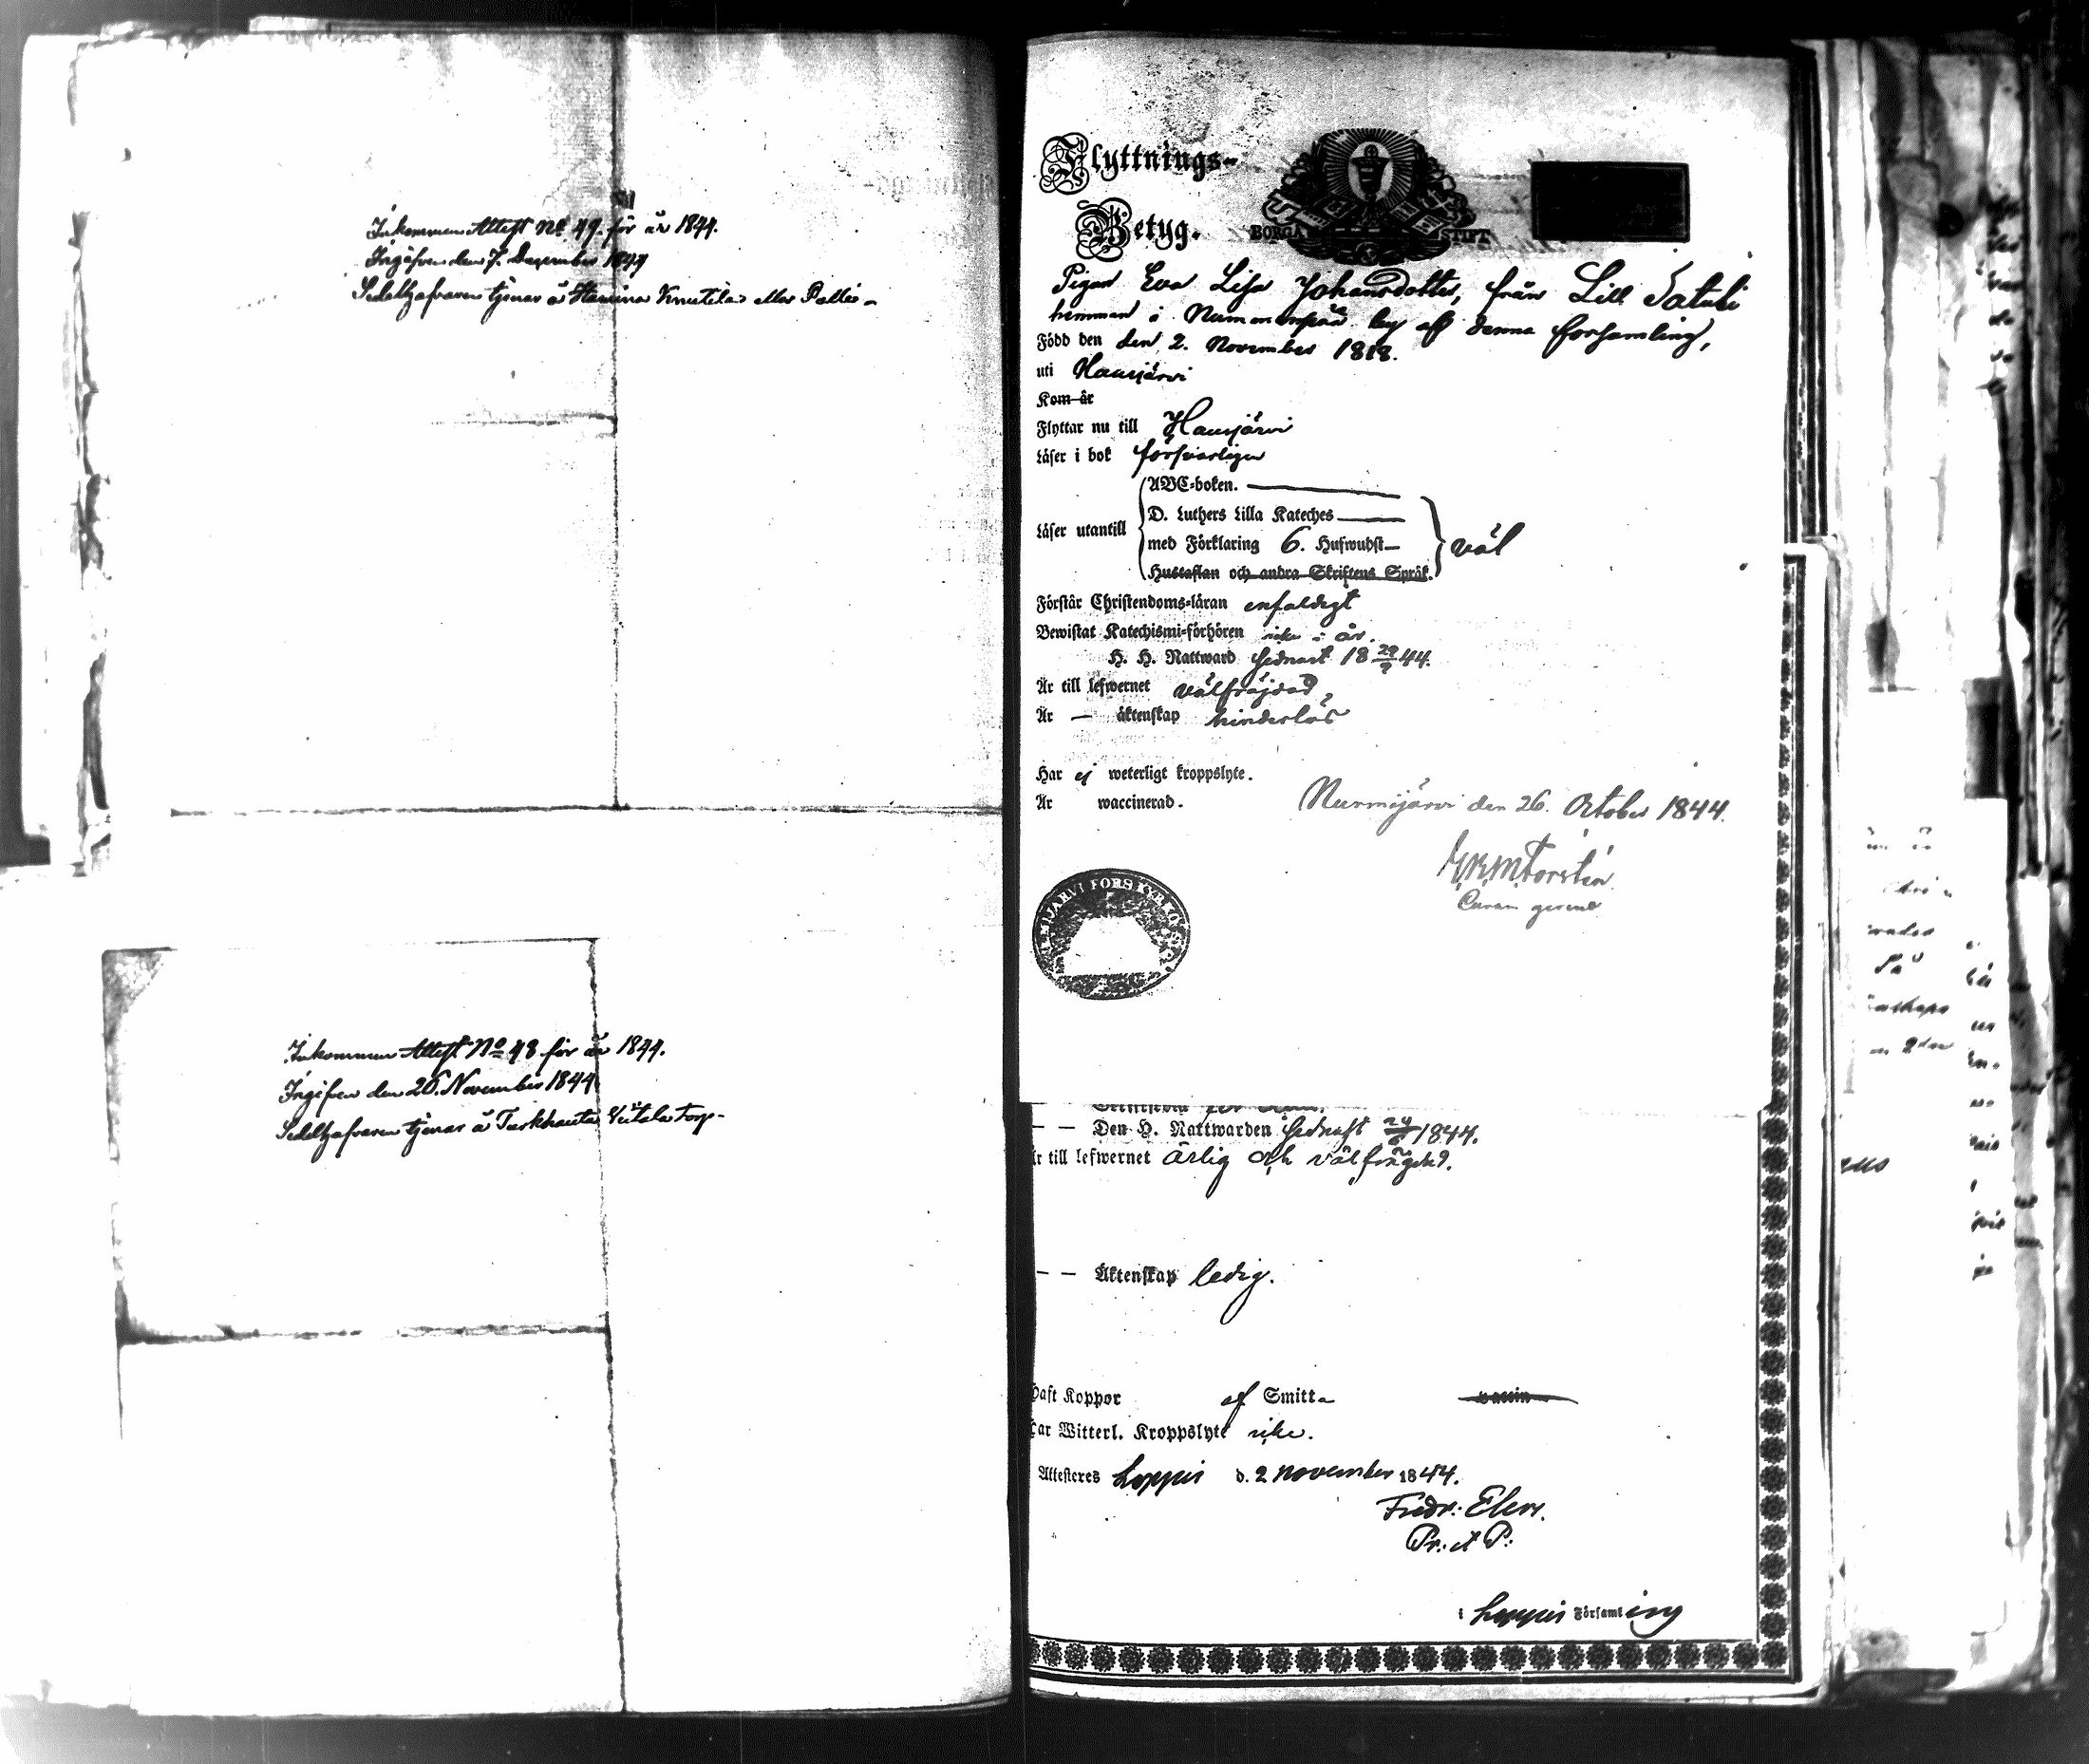 Inkommen Attest No 49. för år 1844.
Ingifven den 7. December 1844
Sedelhafvaren tjenar å Hamina Knutila eller Pallis -
Inkommen Attest No 48 för år 1844.
Ingifven den 26. November 1844
Sedelhafvaren tjenar å Turkhauta Torp -
Flyttnings-
Betyg.
BORGÅ STIFT
Pigan Eva Lisa Johansdotter, från Lill
hemman i by af denna församling,
Född den den 2. November 1818.
uti Hausjärvi
Kom år
Flyttar nu till Hausjärvi
Läser i bok försvarligen
Läser utantill
ABC-boken.
D. Luthers Lilla Kateches
med Förklaring 6. Hufwudst
Hustaflan och andra Skriftens Språk.
väl
Förstår Christendoms-läran enfaldigt
Bewistat Katechismi-förhören icke i år.
H. H. Nattward sednast 18 29/9 44.
Är till lefwernet välfräjdad
Är — äktenskap hinderlös
Har ej weterligt kroppslyte.
Är waccinerad.
Nurmijärvi den 26. October 1844.
Curam gerens
JÄRVI FORS KYRKO
— — Den H. Nattwarden sednast 1844.
är till lefwernet ärlig och välfrägdad.
— — Äktenskap ledig.
Haft Koppor af Smitta
Har Witterl. Kroppslyte icke.
Attesteras Loppis d. 2 November 1844.
Fredr: Elers.
Pr. et P:
i Loppis Församling